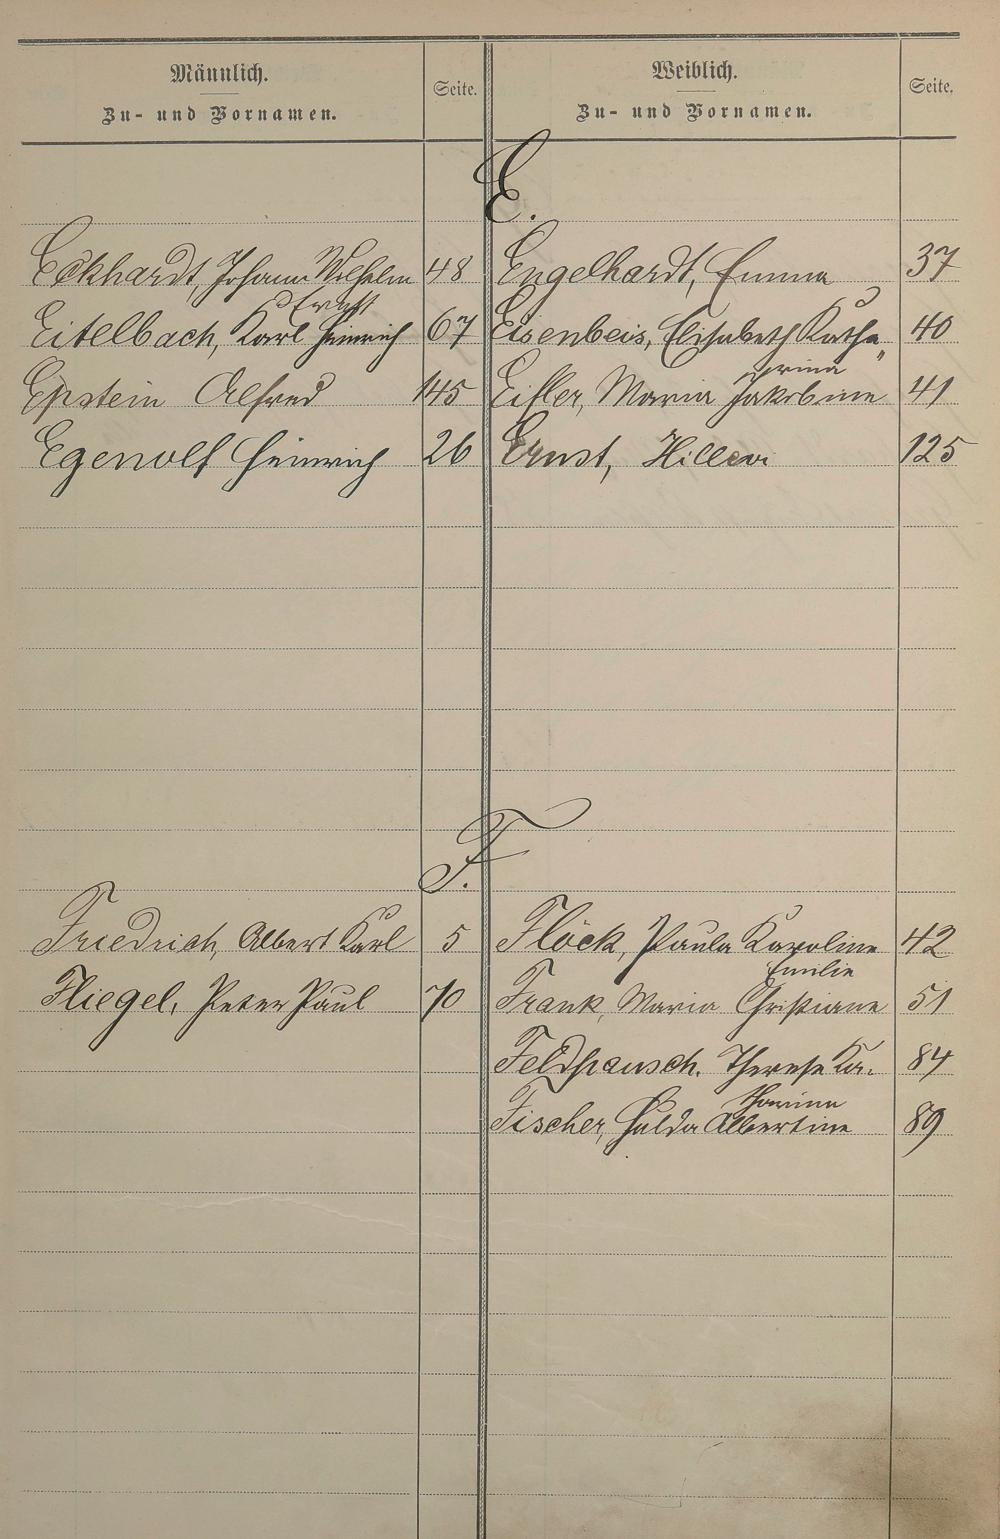 Männlich. Weiblich.
Zu- und Vornamen. Seite. Zu- und Vornamen. Seite.
E.
Eckhardt, Johann Wilhelm 48 Engelhardt, Emma 37
Ernst
Eitelbach, Karl Heinrich 67 Eisenbeis, Elisabeth Katha„ 40
rina
Epstein Alfred 145 Eifler, Maria Jakobine 41
Egenolf Heinrich 26 Ernst, 125
F.
Friedrich, Albert Karl 5 Flöck, Paula Karoline 42
Emilie
Fliegel, Peter Paul 70 Frank, Maria Christiane 51
Feldhausch, Therese Ka- 84
tharina
Fischer, Hulda Albertine 89